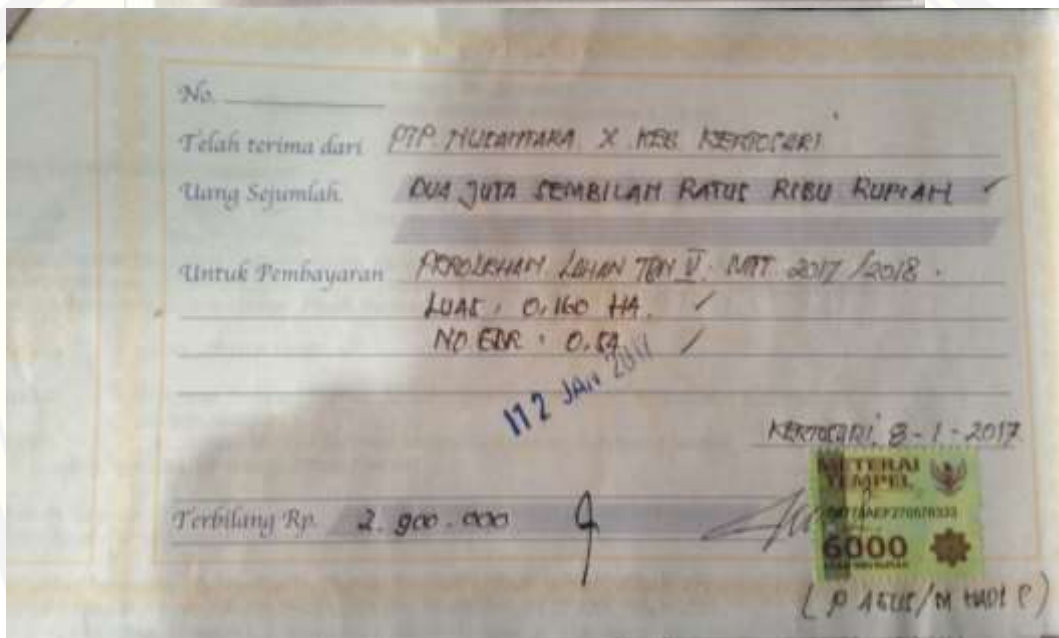 No.
Telah terima dari PTP. NUSANTARA X KEB KERTOSARI
Uang Sejumlah. DUA JUTA SEMBILAN RATUS RIBU RUPIAH
Untuk Pembayaran PEROLEHAN LAHAN TBN V. MTT 2017/2018.
LUAS : 0,160 HA.
NO EDR : 0.59
12 JAN 2017
KERTOSARI, 8-1-2017
METERAI
TEMPEL
6000
Terbilang Rp. 2.900.000
(P AGUS/M HADI P)